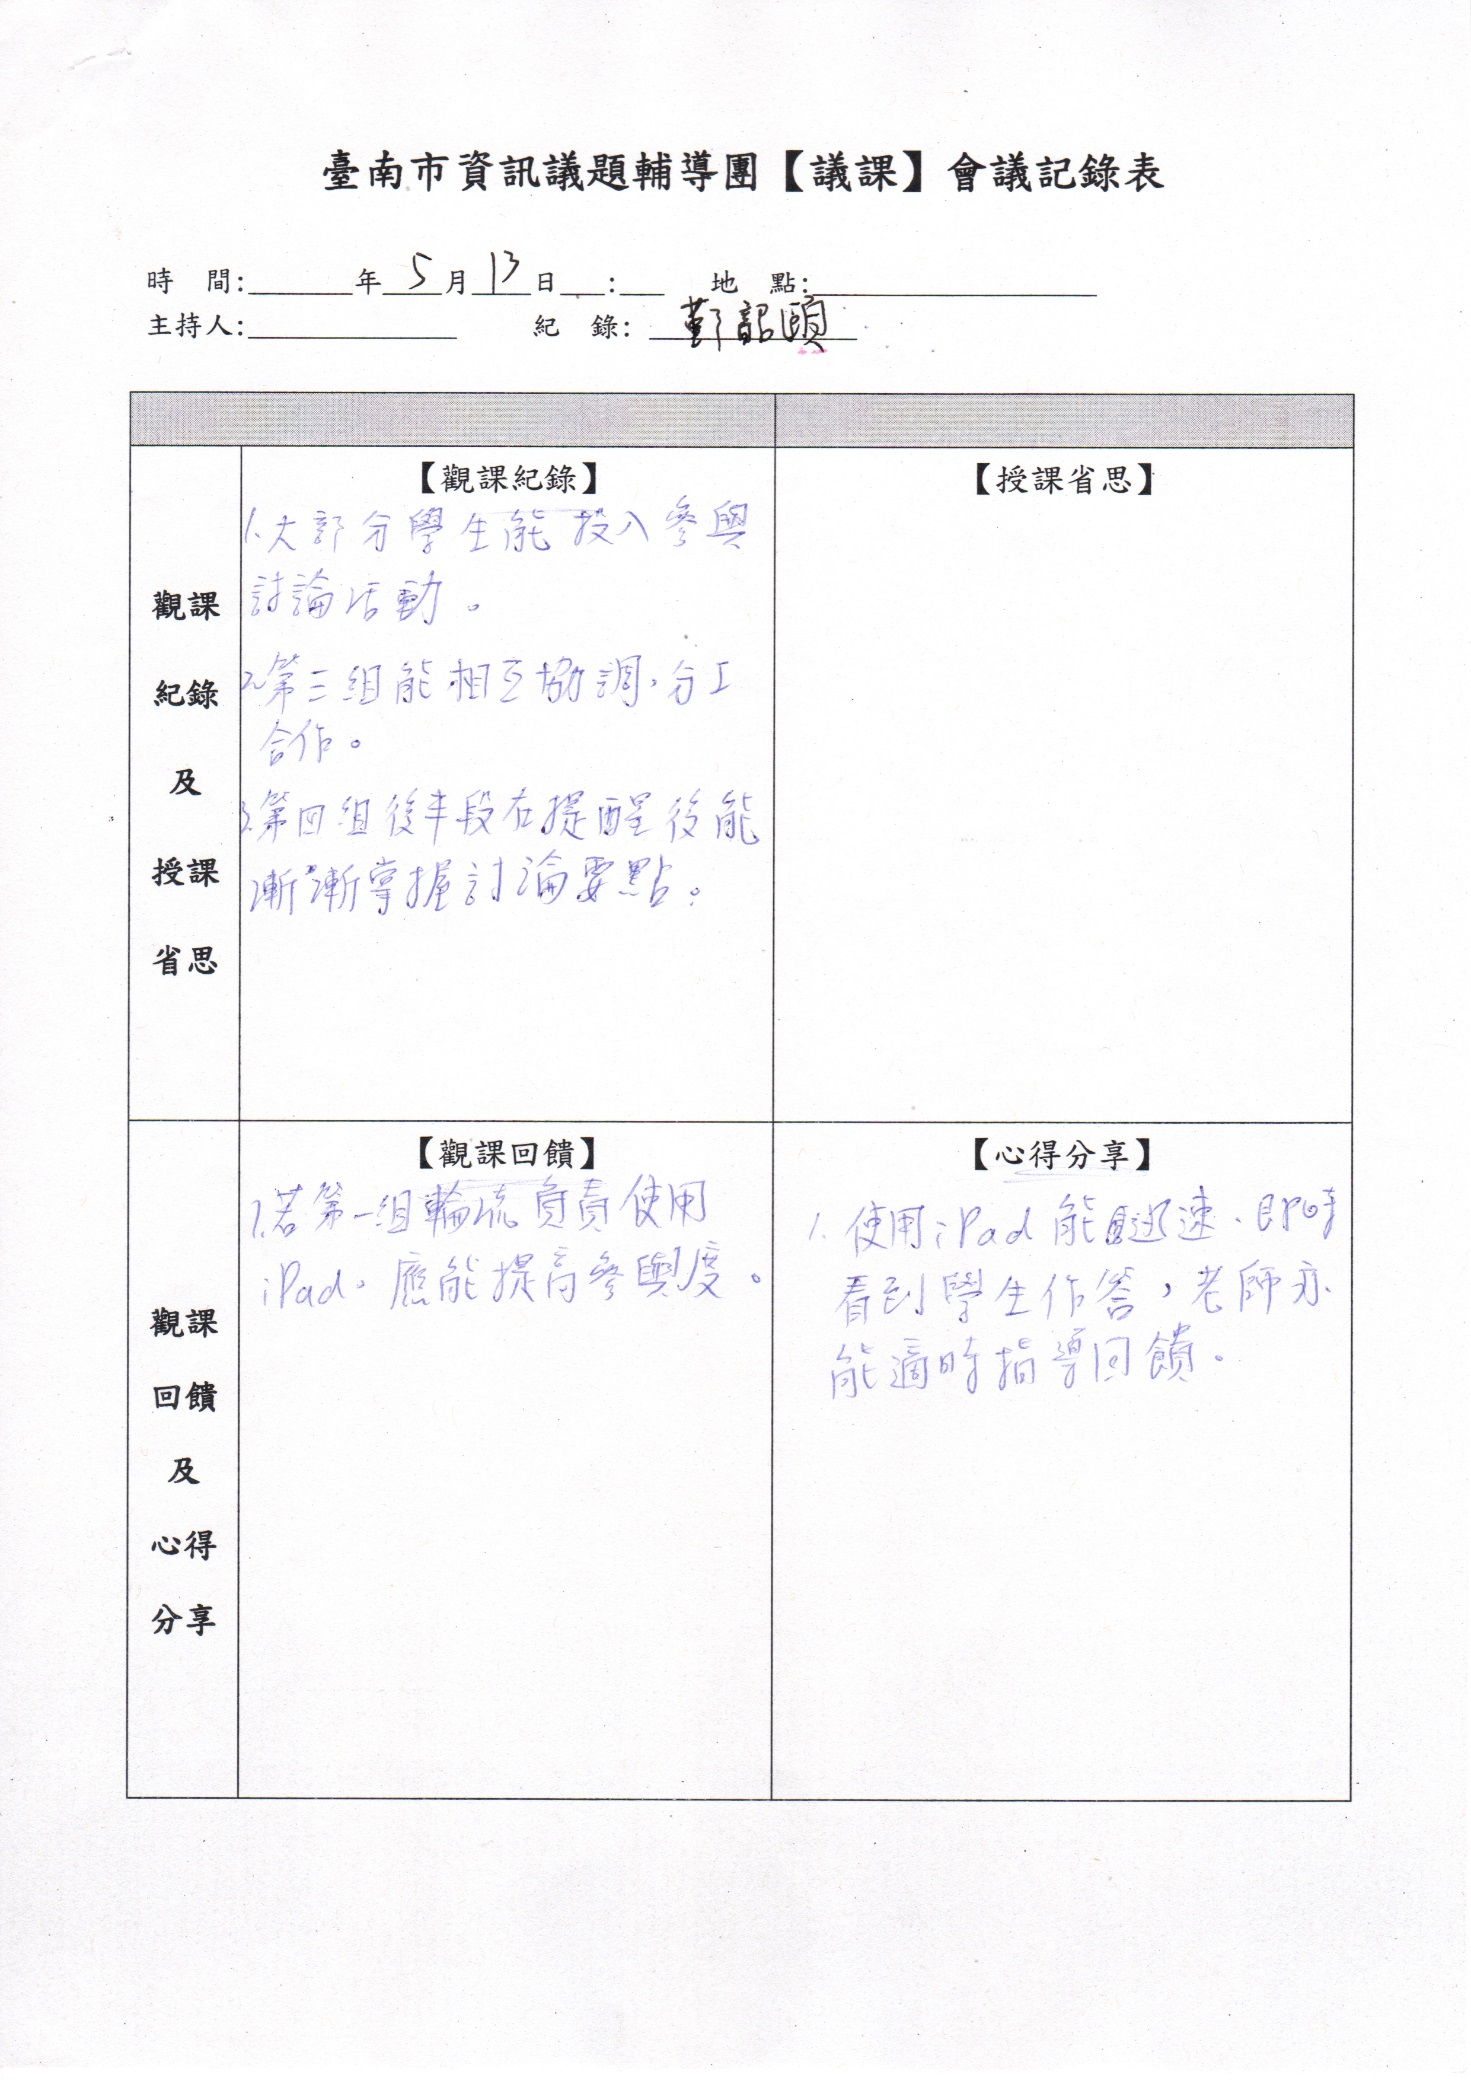 臺南市資訊議題輔導團【議課】會議記錄表
時 間:______年 5 月 13 日__:__ 地 點:__________
主持人:__________ 紀 錄: 鄞韶頤
【觀課紀錄】
【授課省思】
觀課
紀錄
及
授課
省思
1.大部分學生能投入參與
討論活動。
2.第三組能相互協調,分工
合作。
3.第四組後半段在提醒後能
漸漸掌握討論要點。
【觀課回饋】
【心得分享】
觀課
回饋
及
心得
分享
1.若第一組輪流負責使用
iPad,應能提高參與度。
1. 使用iPad能迅速、即時
看到學生作答,老師亦
能適時指導回饋。